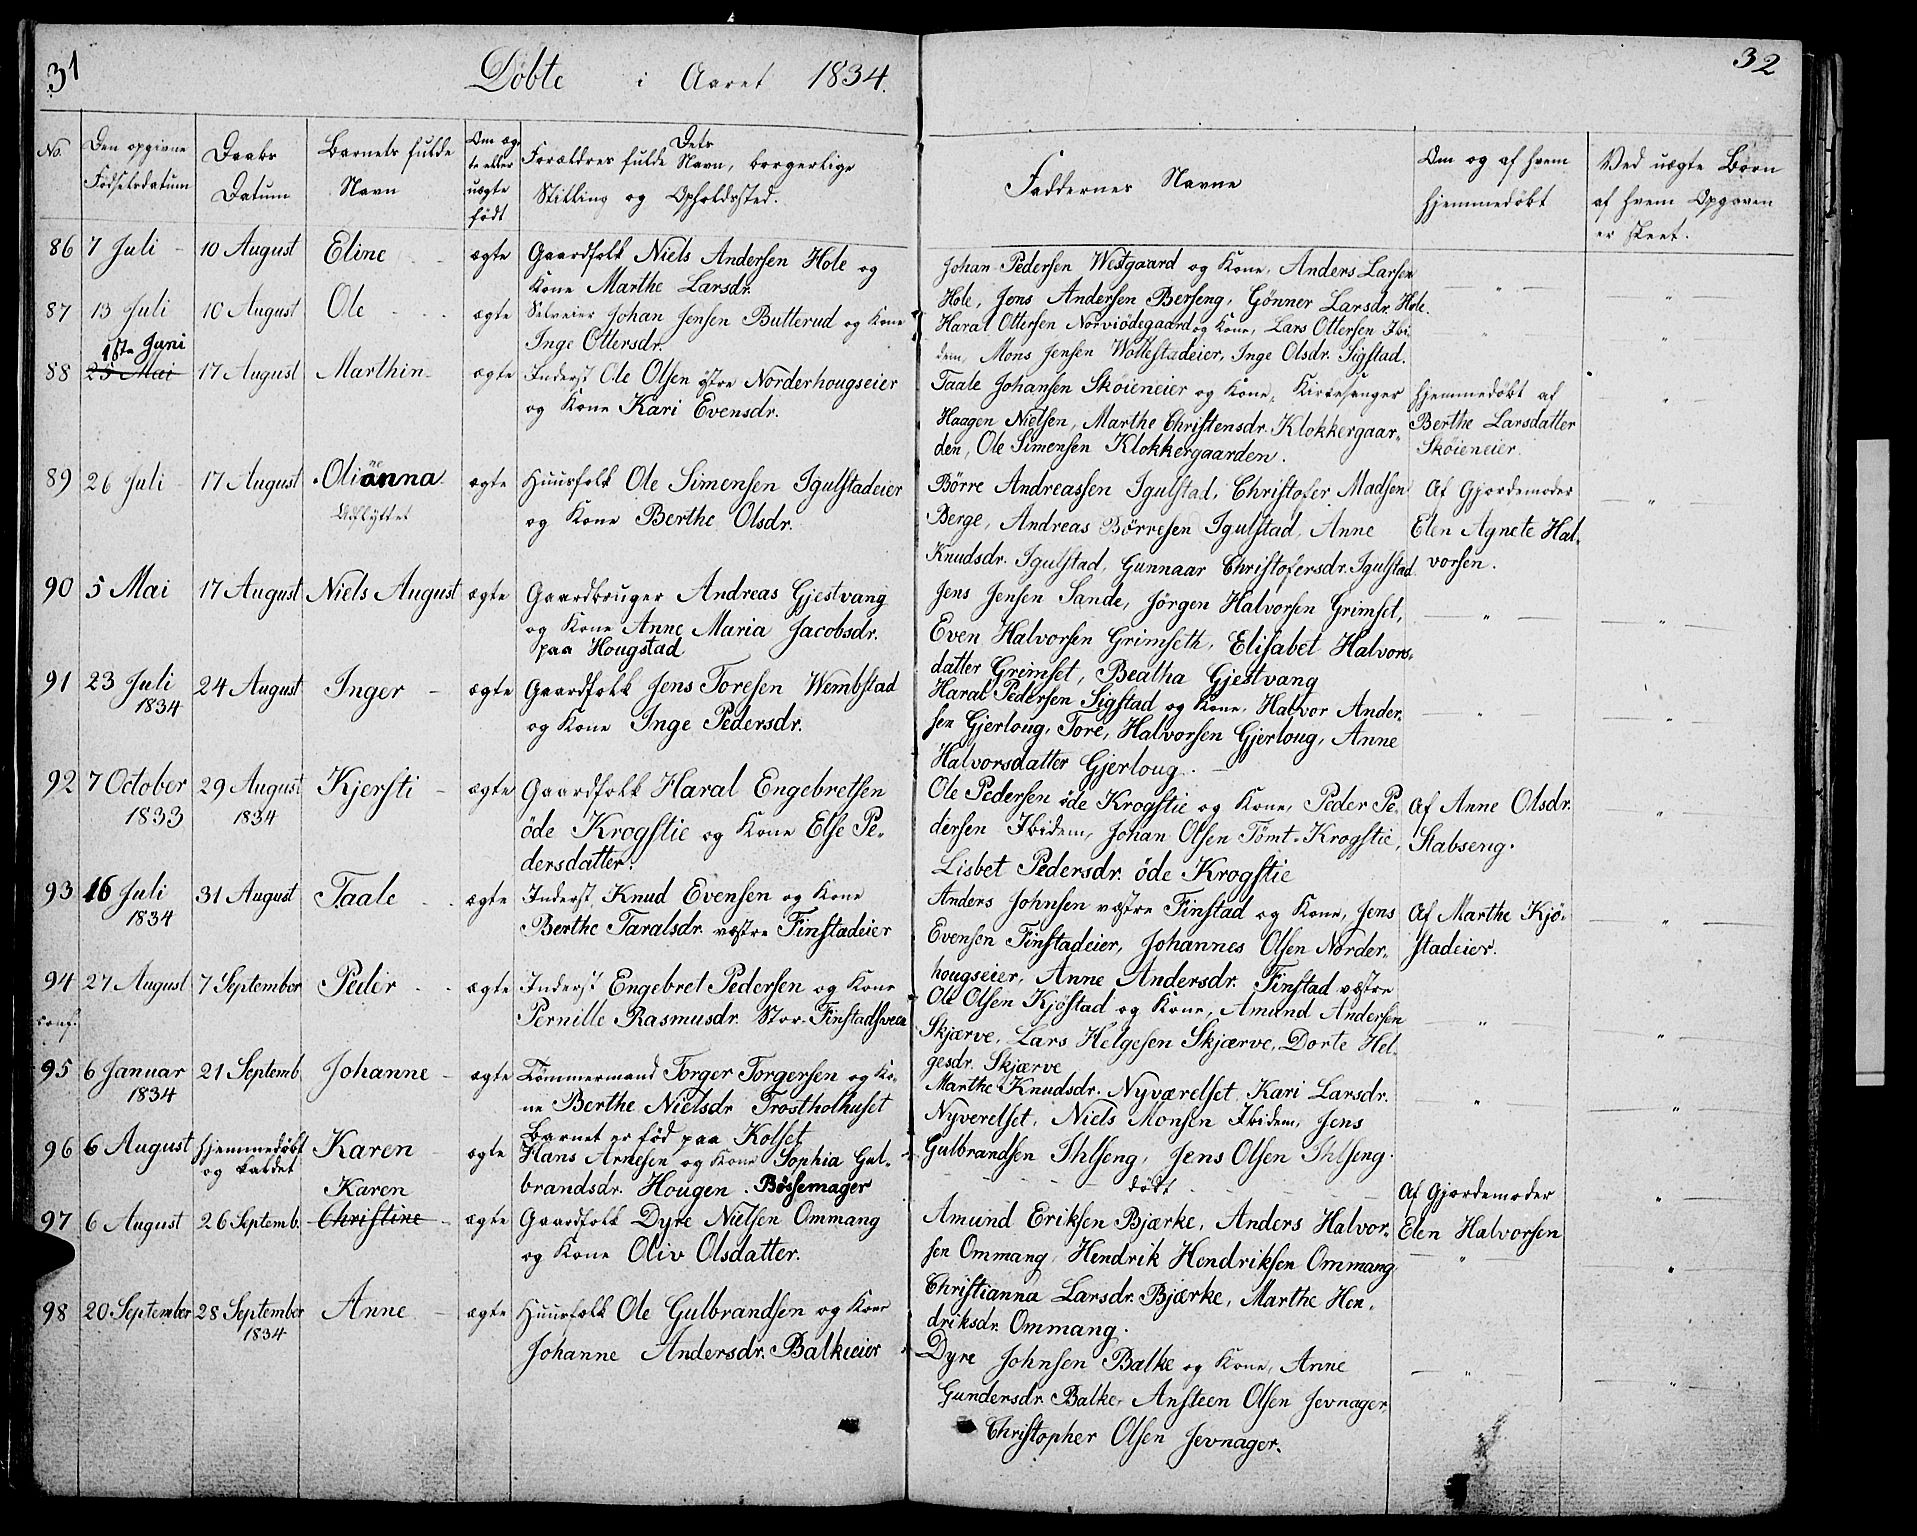 31
Döbte i Aaret 1834.
No.
Den opgivne
Fødselsdatum
Daabs
Datum
Barnets fulde
Navn
Om æg-
te eller
uægte
född
Dets
Forældres fulde Navn, borgerlige
Stilling og Opholdssted.
86 7 Juli 10 August Eline ægte Gaardfolk Niels Andersen Hole og
Kone Marthe Larsdr.
87 13 Juli 10 August Ole ægte Selveier Johan Jensen Butterud og Kone
Inge Ottersdr.
1ste Juni
88 25 Mai 17 August Marthin ægte Inderst Ole Olsen østre Norderhougseier
og Kone Kari Evensdr.
89 26 Juli 17 August Olianna ægte Huusfolk Ole Simensen Igulstadeier
ne
Udflyttet
og Kone Berthe Olsdr.
90 5 Mai 17 August Niels August ægte Gaardbruger Andreas Gjestvang
og Kone Anne Maria Jacobsdr.
paa Hougstad
91 23 Juli 24 August Inger ægte Gaardfolk Jens Toresen Wembstad
1834
og Kone Inge Pedersdr.
92 7 October 29 August Kjersti ægte Gaardfolk Haral Engebretsen
1833 1834
öde Krogstie og Kone Else Pe-
dersdatter.
93 16 Juli 31 August Taale ægte Inderst Knud Evensen og Kone
1834
Berthe Taralsdr. vestre Finstadeier
94 27 August 7 September Peder ægte Inderst Engebret Pedersen og Kone
conf.
Pernille Rasmusdr. Stor-Finstadsveen
95 6 Januar 21 Septemb. Johanne ægte Tömmermand Torger Torgersen og Ko-
1834
ne Berthe Nielsdr Trostholhuset
Barnet er fød paa Kolset
96 6 August hjemmedöbt Karen ægte Hans Arnesen og Kone Sophia Gul-
og kaldet
brandsdr. Hougen. Bössemager
Karen
97 6 August 26 Septemb. Christine ægte Gaardfolk Dyre Nielsen Ommang
og Kone Oliv Olsdatter.
98 20 September 28 September Anne ægte Huusfolk Ole Gulbrandsen og Kone
1834
Johanne Andersdr. Balkieier
32
Faddernes Navne
Om og af hvem
hjemmedöbt
Ved uægte Børn
af hvem Opgaven
er skeet.
Johan Pedersen Westgaard og Kone, Anders Larsen
Hole, Jens Andersen Berseng, Gönner Larsdr. Hole.
Haral Ottersen Norviödegaard og Kone, Lars Ottersen Ibi-
dem, Mons Jensen Wollestadeier, Inge Olsdr. Sigstad.
Taale Johansen Sköieneier og Kone, Kirkesanger
Haagen Nielsen, Marthe Christensdr. Klokkergaar-
den, Ole Simensen Klokkergaarden.
hjemmedöbt af
Berthe Larsdatter
Sköieneier.
Börre Andreassen Igulstad, Christofer Madsen
Berge, Andreas Börresen Igulstad, Anne
Knudsdr. Igulstad, Gunnaar Christofersdr. Igulstad.
Af Gjordemoder
Elen Agnete Hal-
vorsen.
Jens Jensen Sande, Jörgen Halvorsen Grimset,
Even Halvorsen Grimseth, Elisabet Halvors-
datter Grimset, Beatha Gjestvang
Haral Pedersen Sigstad og Kone, Halvor Ander-
sen Gjerloug, Tore, Halvorsen Gjerloug, Anne
Halvorsdatter Gjerloug.
Ole Pedersen öde Krogstie og Kone, Peder Pe-
dersen Ibidem, Johan Olsen Tömt-Krogstie,
Lisbet Pedersdr. öde Krogstie
Af Anne Olsdr.
Stabseng.
Anders Johnsen vestre Finstad og Kone, Jens
Evensen Finstadeier, Johannes Olsen Norder-
hougseier, Anne Andersdr. Finstad vestre
Af Marthe Kjö-
stadeier.
Ole Olsen Kjöstad og Kone, Amund Andersen
Skjærve, Lars Helgesen Skjærve, Dorte Hel-
gesdr. Skjærve
Marthe Knudsdr. Nyværelset, Kari Larsdr.
Nyverelset, Niels Monsen Ibidem, Jens
Gulbrandsen Ihlseng, Jens Olsen Ihlseng.
dödt
Af Gjordemoder
Elen Halvorsen
Amund Eriksen Bjærke, Anders Halvor-
sen Ommang, Hendrik Hendriksen Ommang
Christianna Larsdr. Bjærke, Marthe Hen-
driksdr. Ommang.
Dyre Johnsen Balke og Kone, Anne
Gundersdr. Balke, Ansteen Olsen Jevnager,
Christopher Olsen Jevnager.